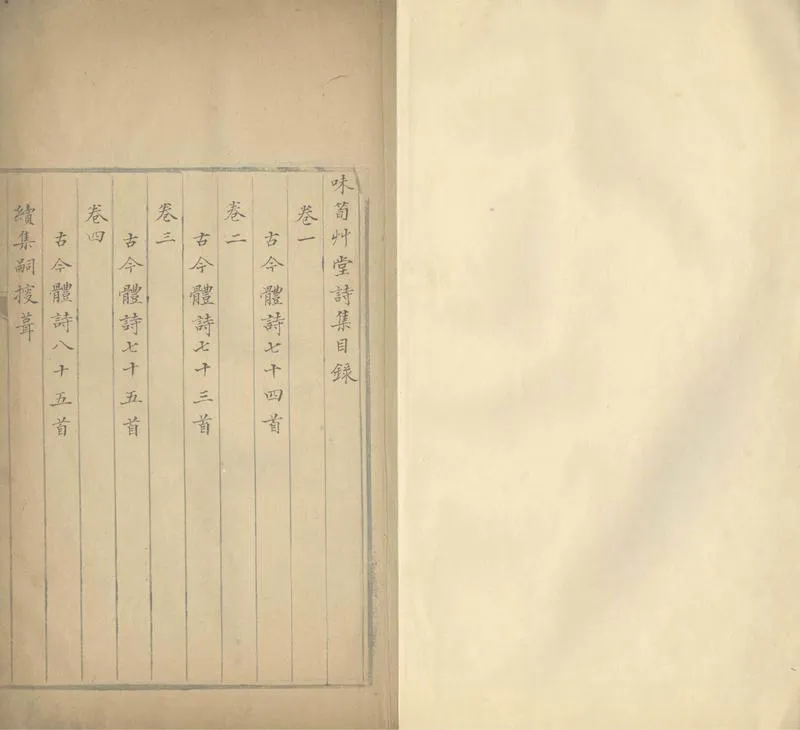 味筍艸堂詩集目錄
卷一
古今體詩七十四首
卷二
古今體詩七十三首
卷三
古今體詩七十五首
卷四
古今體詩八十五首
續集嗣採葺